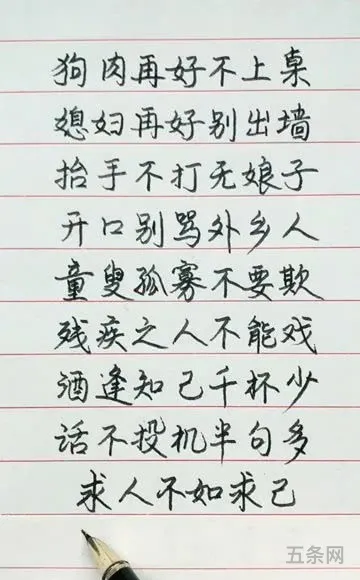 狗肉再好不上桌
媳妇再好别出墙
抬手不打无娘子
开口别骂外乡人
童叟孤寡不要欺
残疾之人不能戏
酒逢知己千杯少
话不投机半句多
求人不如求己
五条网